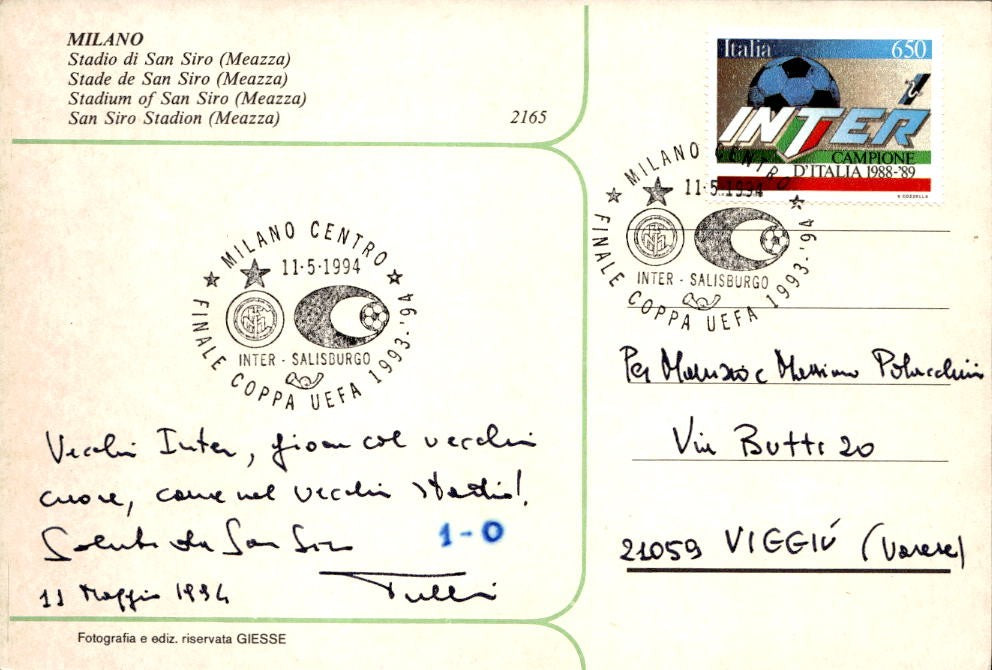 MILANO
Stadio di San Siro (Meazza)
Stade de San Siro (Meazza)
Stadium of San Siro (Meazza)
San Siro Stadion (Meazza)
2165
Italia 650
INTER
CAMPIONE
D'ITALIA 1988-'89
MILANO CENTRO
11·5·1994
INTER - SALISBURGO
FINALE COPPA UEFA 1993-'94
MILANO CENTRO
11·5·1994
INTER - SALISBURGO
FINALE COPPA UEFA 1993-'94
Vecchia Inter, gioca col vecchio
cuore, come nel vecchio stadio!
Saluti da San Siro
1-0
11 Maggio 1994
Per Maurizio e Massimo
Via Butti 20
21059 VIGGIÚ (Varese)
Fotografia e ediz. riservata GIESSE